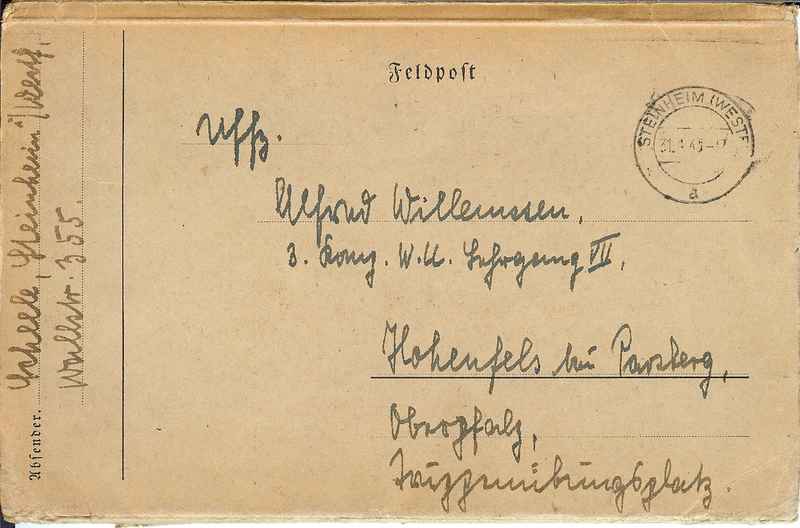 Feldpost
STEINHEIM (WESTF
31.1.45
a
Uffz.
Alfred Willemssen,
3. Komp. W.U. Lehrgang VII,
Hohenfels bei Parsberg,
Oberpfalz,
Truppenübungsplatz.
Absender.
Scheele, Steinheim i/Westf.
Wallstr. 355.